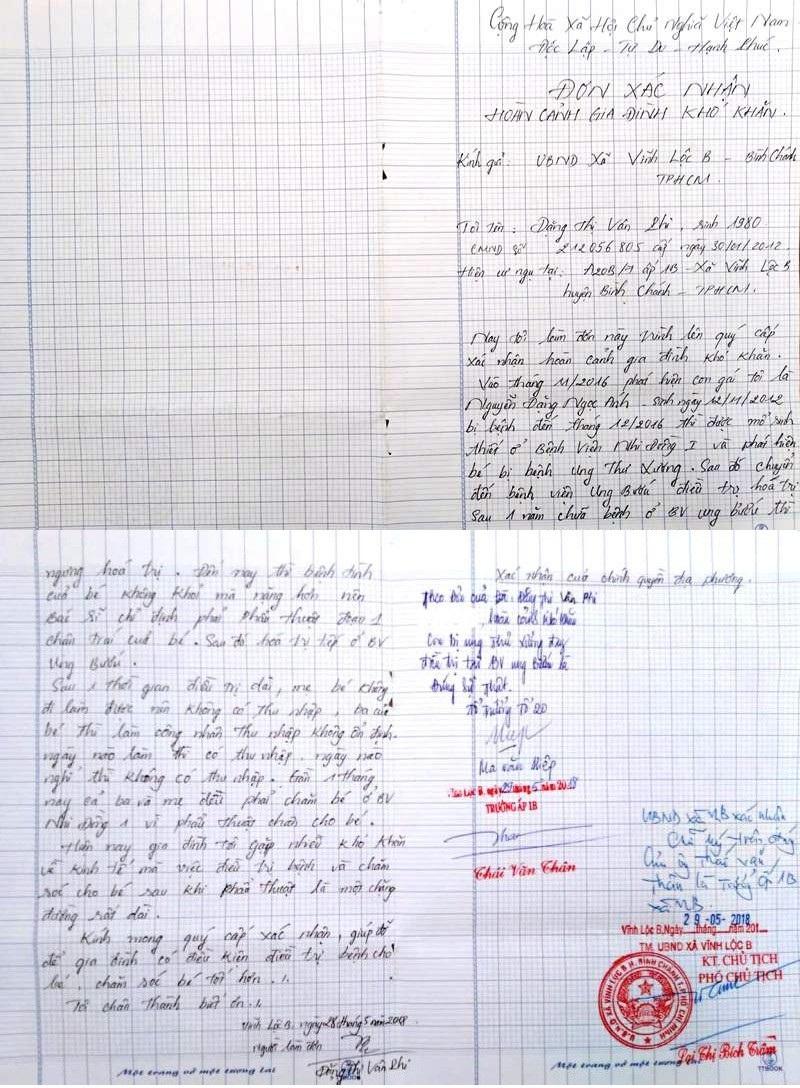 Cộng Hoà Xã Hội Chủ Nghĩa Việt Nam
Độc Lập - Tự Do - Hạnh Phúc.
ĐƠN XÁC NHẬN
HOÀN CẢNH GIA ĐÌNH KHÓ KHĂN.
Kính gửi: UBND Xã Vĩnh Lộc B - Bình Chánh
TPHCM.
Tôi tên: Đặng Thị Vân Phi, sinh 1980
CMND số 212056805 cấp ngày 30/01/2012.
Hiện cư ngụ tại: A20B/1 ấp 1B - Xã Vĩnh Lộc B
huyện Bình Chánh - TPHCM.
Nay tôi làm đơn này trình lên quý cấp
xác nhận hoàn cảnh gia đình khó khăn.
Vào tháng 11/2016 phát hiện con gái tôi là
Nguyễn Đặng Ngọc Anh - sinh ngày 12/11/2012
bị bệnh đến tháng 12/2016 thì được mổ sinh
thiết ở Bệnh Viện Nhi Đồng I và phát hiện
bé bị bệnh Ung Thư Xương. Sau đó chuyển
đến bệnh viện Ung Bướu điều trị hoá trị
Sau 1 năm chữa bệnh ở BV ung bướu thì
ngưng hoá trị. Đến nay thì bệnh tình
của bé không khỏi mà nặng hơn nên
Bác sĩ chỉ định phải phẫu thuật đoạn 1
chân trái của bé. Sau đó hoá trị tiếp ở BV
Ung Bướu.
Sau 1 thời gian điều trị dài, mẹ bé không
đi làm được nên không có thu nhập, ba của
bé thì làm công nhân thu nhập không ổn định.
ngày nào làm thì có thu nhập. ngày nào
nghỉ thì không có thu nhập. Gần 1 tháng
nay cả ba và mẹ đều phải chăm bé ở BV
Nhi Đồng 1 vì phẫu thuật chân cho bé.
Hiện nay gia đình tôi gặp nhiều khó khăn
về kinh tế mà việc điều trị bệnh và chăm
sóc cho bé sau khi phẫu thuật là một chặng
đường rất dài.
Kính mong quý cấp xác nhận, giúp đỡ
để gia đình có điều kiện điều trị bệnh cho
bé, chăm sóc bé tốt hơn ./.
Tôi chân thành biết ơn ./.
Vĩnh Lộc B, ngày 28 tháng 5 năm 2018
Người làm đơn
Đặng Thị Vân Phi
Một trang vở một tương lai
Xác nhận của chính quyền địa phương.
Theo Đơn của Bà: Đặng Thị Vân Phi
hoàn cảnh khó khăn
Con bị ung thư xương đang
điều trị tại BV ung Bướu là
Đúng sự thật.
Tổ trưởng Tổ 20
Ma Văn Hiệp
Vĩnh Lộc B, ngày 29 tháng 5 năm 2018
TRƯỞNG ẤP 1B
Thái Văn Thân
UBND xã VLB xác nhận
Chữ ký trên đúng
của ông Thái Văn
Thân là Trưởng ấp 1B
xã VLB.
29-05-2018
Vĩnh Lộc B, Ngày.....tháng.....năm 201...
TM. UBND XÃ VĨNH LỘC B
KT. CHỦ TỊCH
PHÓ CHỦ TỊCH
U.B.N.D XÃ VĨNH LỘC B H. BÌNH CHÁNH T.P HỒ CHÍ MINH
Lại Thị Bích Trâm
Một trang vở một tương lai
TTBOOK